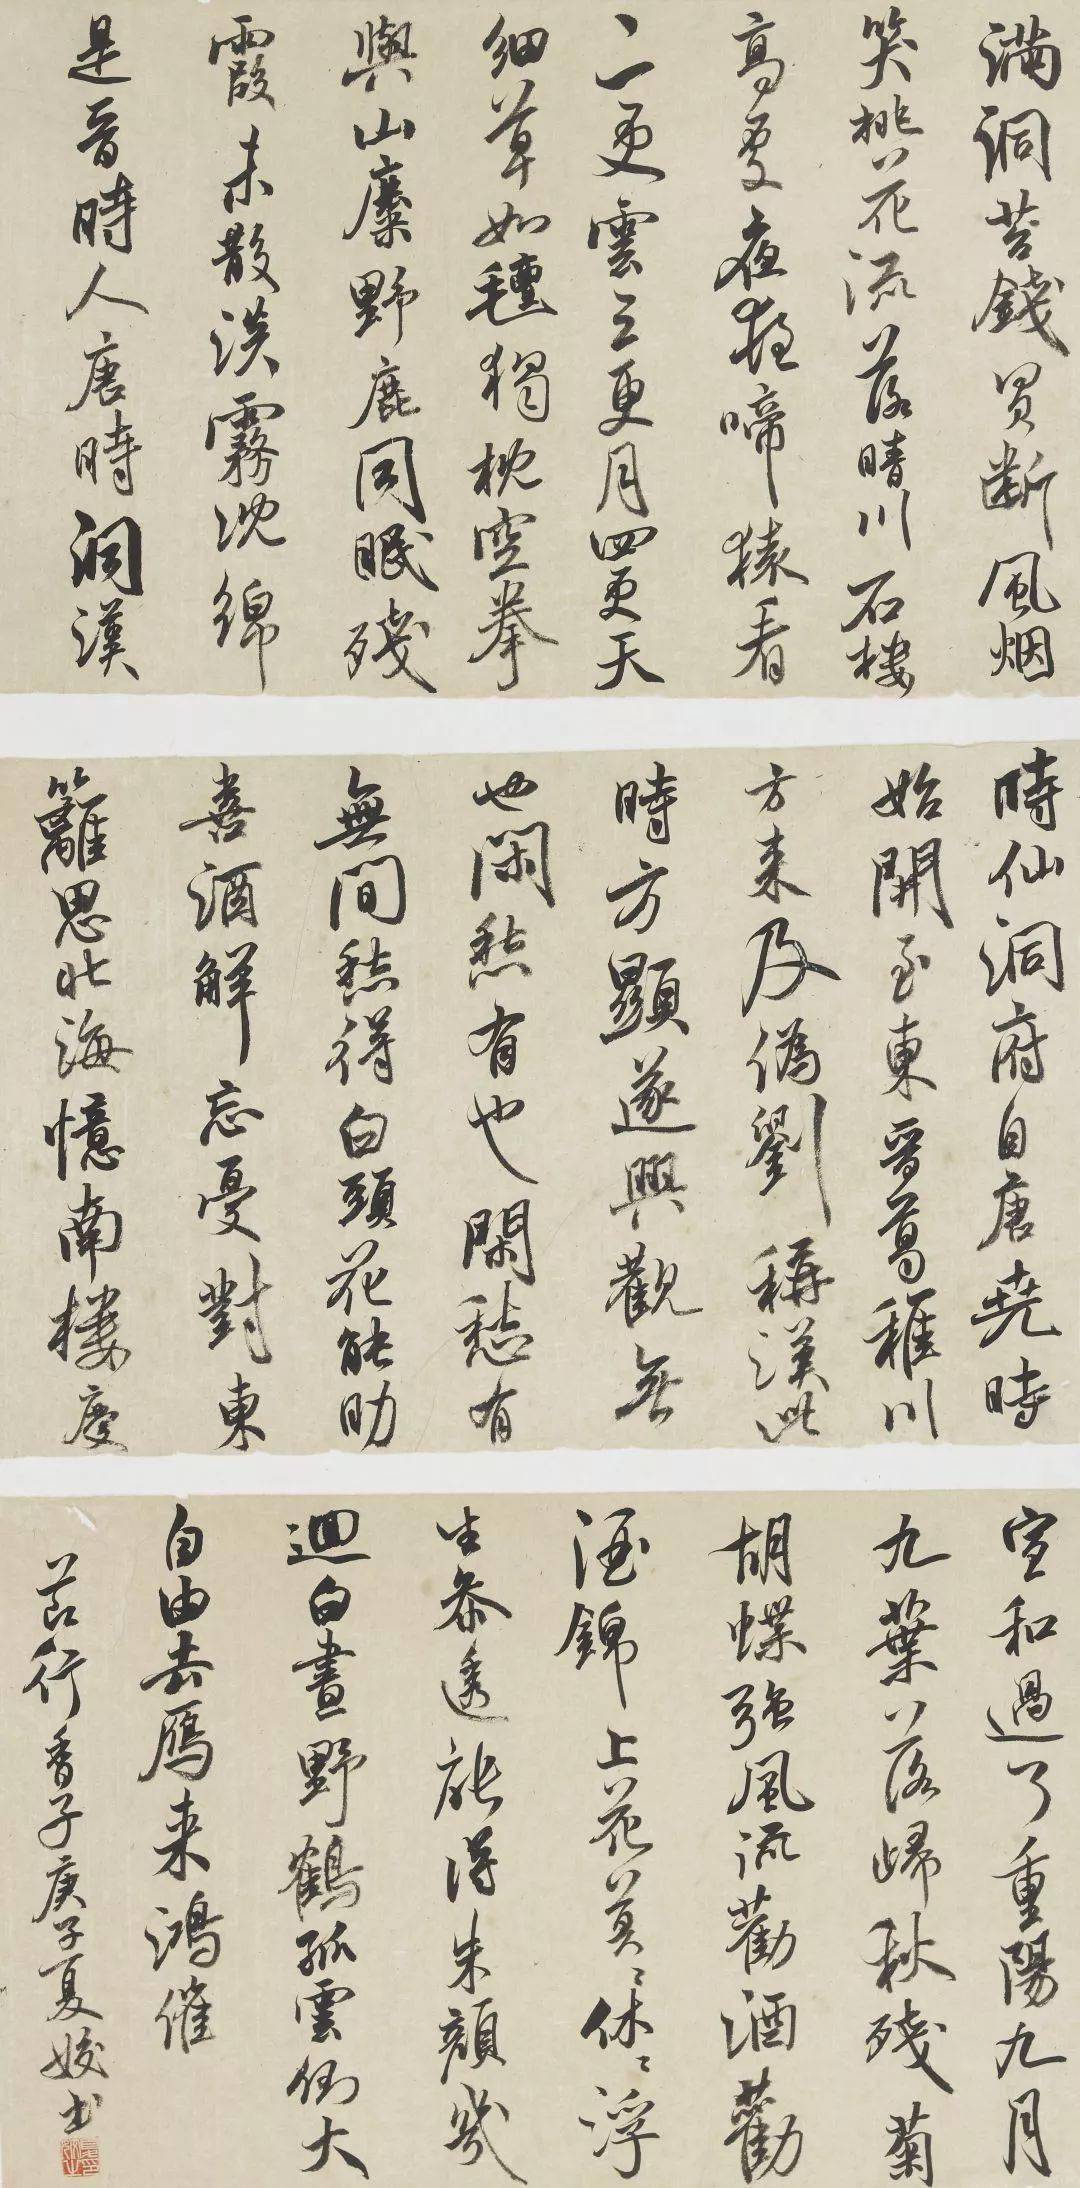 滿洞苔錢買斷風烟
笑桃花流落晴川石樓
高處夜夜啼猿看
二更雲三更月四更天
細草如氈獨枕空拳
與山麋野鹿同眠殘
霞未散淡霧沈綿
是晉時人唐時洞漢
時仙洞府自唐堯時
始開至東晉葛稚川
方来及偽劉稱漢此
時方顯遂興觀無
也閑愁有也閑愁有
無間愁得白頭花能助
喜酒解忘憂對東
籬思北海憶南樓慶
宣和過了重陽九月
九葉落歸秋殘菊
胡蝶強風流勸酒勸
酒錦上花莫〻休〻浮
生參透能得朱顏幾
迴白晝野鶴孤雲倒大
自由去雁来鴻催
節行香子庚子夏姣書